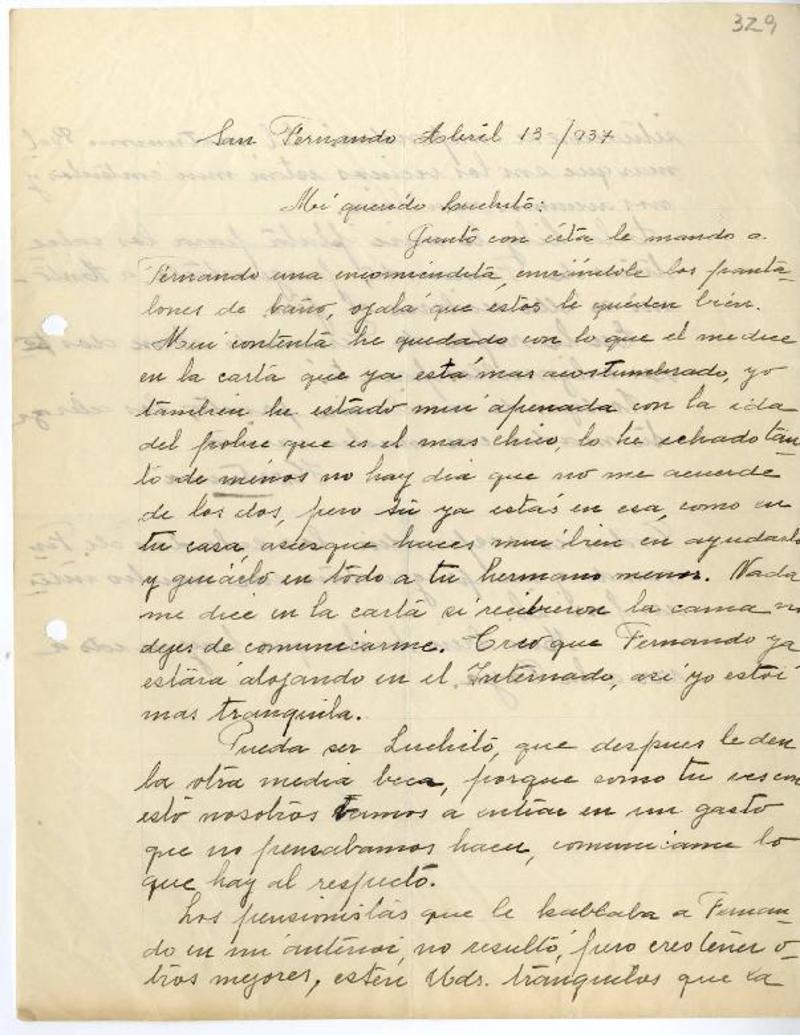 329
San Fernando Abril 13/937
Mi querido Luchito:
Junto con ésta le mando a
Fernando una encomiendita, enviándole los panta-
lones de baño, ojalá que estos le queden bien.
Mui contenta he quedado con lo que el me dice
en la carta que ya está mas acostumbrado, yo
tambien he estado mui apenada con la ida
del pobre que es el mas chico, lo he echado tan-
to de menos no hay dia que no me acuerde
de los dos, pero tú ya estás en esa, como en
tu casa, asiesque haces mui bien en ayudarlo
y guiarlo en todo a tu hermano menor. Nada
me dice en la carta si recibieron la cama no
dejes de comunicarme. Creo que Fernando ya
estará alojando en el Internado, asi yo estoi
mas tranquila.
Pueda ser Luchito, que despues le den
la otra media beca, porque como tu ves con
esto nosotros vamos a entrar en un gasto
que no pensabamos hacer, comunicame lo
que hay al respecto.
Los pensionistas que le hablaba a Fernan-
do en mi anterior, no resultó, pero creo tener o-
tros mejores, estén Uds. tranquilos que la